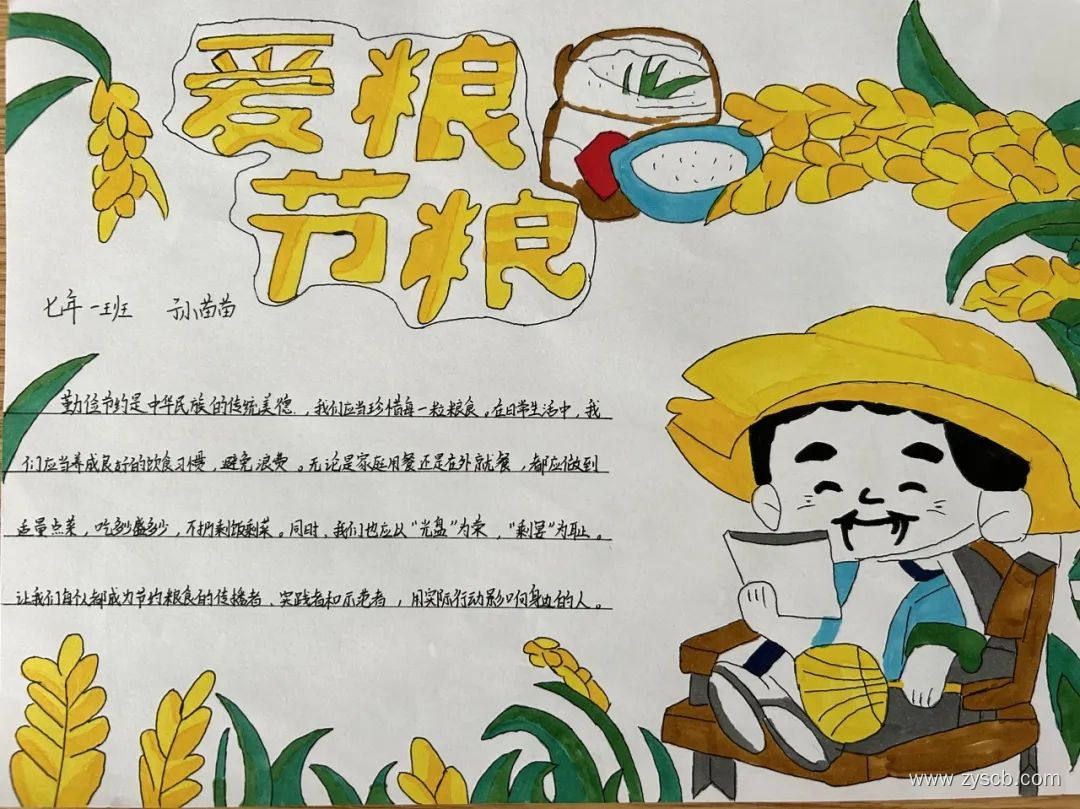 爱粮
节粮
七年一班 孙苗苗
勤俭节约是中华民族的传统美德，我们应当珍惜每一粒粮食。在日常生活中，我
们应当养成良好的饮食习惯，避免浪费。无论是家庭用餐还是在外就餐，都应做到
适量点菜，吃多少盛多少，不扔剩饭剩菜。同时，我们也应以“光盘”为荣，“剩宴”为耻。
让我们每个人都成为节约粮食的传播者、实践者和示范者，用实际行动影响身边的人。
www.zyscb.com